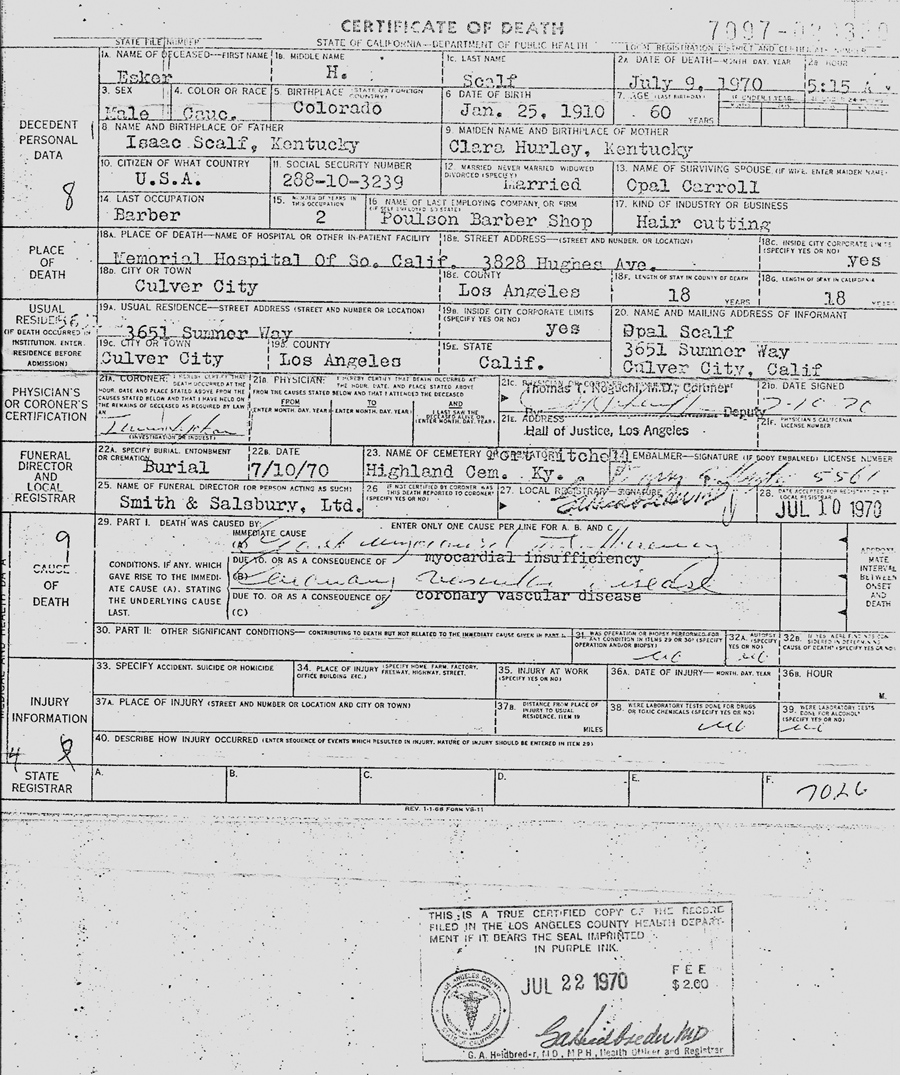 CERTIFICATE OF DEATH
STATE FILE NUMBER
STATE OF CALIFORNIA—DEPARTMENT OF PUBLIC HEALTH
LOCAL REGISTRATION DISTRICT AND CERTIFICATE NUMBER
DECEDENT PERSONAL DATA
8
1A. NAME OF DECEASED—FIRST NAME
Esker
1B. MIDDLE NAME
H.
1C. LAST NAME
Scalf
2A. DATE OF DEATH—MONTH, DAY, YEAR
July 9, 1970
2B. HOUR
5:15 A
3. SEX
Male
4. COLOR OR RACE
Cauc.
5. BIRTHPLACE (STATE OR FOREIGN COUNTRY)
Colorado
6. DATE OF BIRTH
Jan. 25, 1910
7. AGE (LAST BIRTHDAY)
60 YEARS
8. NAME AND BIRTHPLACE OF FATHER
Isaac Scalf, Kentucky
9. MAIDEN NAME AND BIRTHPLACE OF MOTHER
Clara Hurley, Kentucky
10. CITIZEN OF WHAT COUNTRY
U.S.A.
11. SOCIAL SECURITY NUMBER
288-10-3239
12. MARRIED, NEVER MARRIED, WIDOWED, DIVORCED (SPECIFY)
Married
13. NAME OF SURVIVING SPOUSE (IF WIFE, ENTER MAIDEN NAME)
Opal Carroll
14. LAST OCCUPATION
Barber
15. NUMBER OF YEARS IN THIS OCCUPATION
2
16. NAME OF LAST EMPLOYING COMPANY, OR FIRM
Poulson Barber Shop
17. KIND OF INDUSTRY OR BUSINESS
Hair cutting
PLACE OF DEATH
18A. PLACE OF DEATH—NAME OF HOSPITAL OR OTHER IN-PATIENT FACILITY
Memorial Hospital Of So. Calif.
18B. STREET ADDRESS—(STREET AND NUMBER, OR LOCATION)
3828 Hughes Ave.
18C. INSIDE CITY CORPORATE LIMITS (SPECIFY YES OR NO)
yes
18D. CITY OR TOWN
Culver City
18E. COUNTY
Los Angeles
18F. LENGTH OF STAY IN COUNTY OF DEATH
18 YEARS
18G. LENGTH OF STAY IN CALIFORNIA
18 YEARS
USUAL RESIDENCE
(IF DEATH OCCURRED IN INSTITUTION, ENTER RESIDENCE BEFORE ADMISSION)
19A. USUAL RESIDENCE—STREET ADDRESS (STREET AND NUMBER OR LOCATION)
3651 Sumner Way
19B. INSIDE CITY CORPORATE LIMITS (SPECIFY YES OR NO)
yes
20. NAME AND MAILING ADDRESS OF INFORMANT
Opal Scalf
3651 Sumner Way
Culver City, Calif
19C. CITY OR TOWN
Culver City
19D. COUNTY
Los Angeles
19E. STATE
Calif.
PHYSICIAN'S OR CORONER'S CERTIFICATION
21A. CORONER: I HEREBY CERTIFY THAT DEATH OCCURRED AT THE HOUR, DATE AND PLACE STATED ABOVE FROM THE CAUSES STATED BELOW AND THAT I HAVE HELD ON THE REMAINS OF DECEASED AS REQUIRED BY LAW AN
(INVESTIGATION OR INQUEST)
21B. PHYSICIAN: I HEREBY CERTIFY THAT DEATH OCCURRED AT THE HOUR, DATE, AND PLACE STATED ABOVE FROM THE CAUSES STATED BELOW AND THAT I ATTENDED THE DECEASED
FROM TO AND
(ENTER MONTH, DAY, YEAR) (ENTER MONTH, DAY, YEAR)
I LAST SAW THE DECEASED ALIVE ON (ENTER MONTH, DAY, YEAR)
21C.
Thomas T. Noguchi, M.D., Coroner
By Deputy
21D. DATE SIGNED
7-10-70
21E. ADDRESS
Hall of Justice, Los Angeles
21F. PHYSICIAN'S CALIFORNIA LICENSE NUMBER
FUNERAL DIRECTOR AND LOCAL REGISTRAR
22A. SPECIFY BURIAL, ENTOMBMENT OR CREMATION
Burial
22B. DATE
7/10/70
23. NAME OF CEMETERY OR CREMATORY
Highland Cem. Ky.
EMBALMER—SIGNATURE (IF BODY EMBALMED) LICENSE NUMBER
5561
25. NAME OF FUNERAL DIRECTOR (OR PERSON ACTING AS SUCH)
Smith & Salsbury, Ltd.
26. IF NOT CERTIFIED BY CORONER WAS THIS DEATH REPORTED TO CORONER? (SPECIFY YES OR NO)
27. LOCAL REGISTRAR—SIGNATURE
28. DATE ACCEPTED FOR REGISTRATION BY LOCAL REGISTRAR
JUL 10 1970
9
CAUSE OF DEATH
29. PART I. DEATH WAS CAUSED BY: ENTER ONLY ONE CAUSE PER LINE FOR A, B, AND C
IMMEDIATE CAUSE
(A)
myocardial insufficiency
CONDITIONS, IF ANY, WHICH GAVE RISE TO THE IMMEDIATE CAUSE (A), STATING THE UNDERLYING CAUSE LAST.
DUE TO, OR AS A CONSEQUENCE OF
(B)
coronary vascular disease
DUE TO, OR AS A CONSEQUENCE OF
(C)
APPROXIMATE INTERVAL BETWEEN ONSET AND DEATH
30. PART II: OTHER SIGNIFICANT CONDITIONS—CONTRIBUTING TO DEATH BUT NOT RELATED TO THE IMMEDIATE CAUSE GIVEN IN PART I.
31. WAS OPERATION OR BIOPSY PERFORMED FOR ANY CONDITION IN ITEMS 29 OR 30? (SPECIFY OPERATION AND/OR BIOPSY)
no
32A. AUTOPSY (SPECIFY YES OR NO)
no
32B. IF YES, WERE FINDINGS CONSIDERED IN DETERMINING CAUSE OF DEATH? (SPECIFY YES OR NO)
INJURY INFORMATION
33. SPECIFY ACCIDENT, SUICIDE OR HOMICIDE
34. PLACE OF INJURY (SPECIFY HOME, FARM, FACTORY, FREEWAY, HIGHWAY, STREET, OFFICE BUILDING, ETC.)
35. INJURY AT WORK (SPECIFY YES OR NO)
36A. DATE OF INJURY—MONTH, DAY, YEAR
36B. HOUR
M.
37A. PLACE OF INJURY (STREET AND NUMBER OR LOCATION AND CITY OR TOWN)
37B. DISTANCE FROM PLACE OF INJURY TO USUAL RESIDENCE, ITEM 19
MILES
38. WERE LABORATORY TESTS DONE FOR DRUGS OR TOXIC CHEMICALS (SPECIFY YES OR NO)
no
39. WERE LABORATORY TESTS DONE FOR ALCOHOL? (SPECIFY YES OR NO)
no
40. DESCRIBE HOW INJURY OCCURRED (ENTER SEQUENCE OF EVENTS WHICH RESULTED IN INJURY, NATURE OF INJURY SHOULD BE ENTERED IN ITEM 29)
STATE REGISTRAR
A. B. C. D. E. F.
REV. 1-1-68 FORM VS-11
THIS IS A TRUE CERTIFIED COPY OF THE RECORD
FILED IN THE LOS ANGELES COUNTY HEALTH DEPART-
MENT IF IT BEARS THE SEAL IMPRINTED
IN PURPLE INK.
JUL 22 1970
FEE
$2.00
G. A. Heidbreder, M.D., M.P.H., Health Officer and Registrar